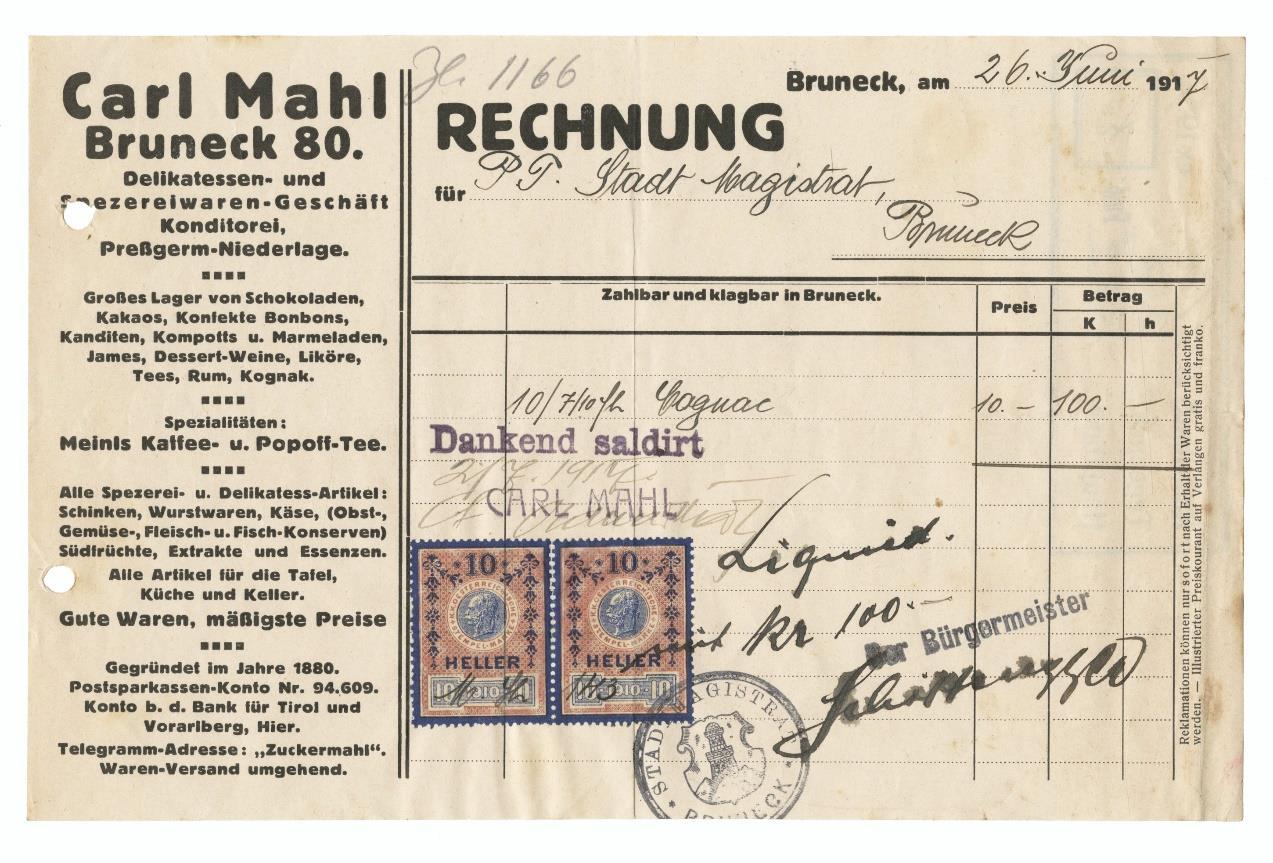 Carl Mahl
Bruneck 80.
Delikatessen- und
Spezereiwaren-Geschäft
Konditorei,
Preßgerm-Niederlage.
Großes Lager von Schokoladen,
Kakaos, Konfekte Bonbons,
Kanditen, Kompotts u. Marmeladen,
James, Dessert-Weine, Liköre,
Tees, Rum, Kognak.
Spezialitäten:
Meinls Kaffee- u. Popoff-Tee.
Alle Spezerei- u. Delikatess-Artikel:
Schinken, Wurstwaren, Käse, (Obst-,
Gemüse-, Fleisch- u. Fisch-Konserven)
Südfrüchte, Extrakte und Essenzen.
Alle Artikel für die Tafel,
Küche und Keller.
Gute Waren, mäßigste Preise
Gegründet im Jahre 1880.
Postsparkassen-Konto Nr. 94.609.
Konto b. d. Bank für Tirol und
Vorarlberg, Hier.
Telegramm-Adresse: „Zuckermahl“.
Waren-Versand umgehend.
Zl. 1166
Bruneck, am 26. Juni 1917
RECHNUNG
für P. T. Stadt Magistrat,
Bruneck
Zahlbar und klagbar in Bruneck.
Preis
Betrag
K h
10/7/10 fl Cognac 10.- 100. -
Dankend saldirt
2/7. 1917.
CARL MAHL
Liquid.
mit Kr 100.-
Der Bürgermeister
10 10
HELLER HELLER
10 1910 10 10 1910 10
STADTMAGISTRAT
* BRUNECK *
Reklamationen können nur sofort nach Erhalt der Waren berücksichtigt
werden. — Illustrierter Preiskourant auf Verlangen gratis und franko.